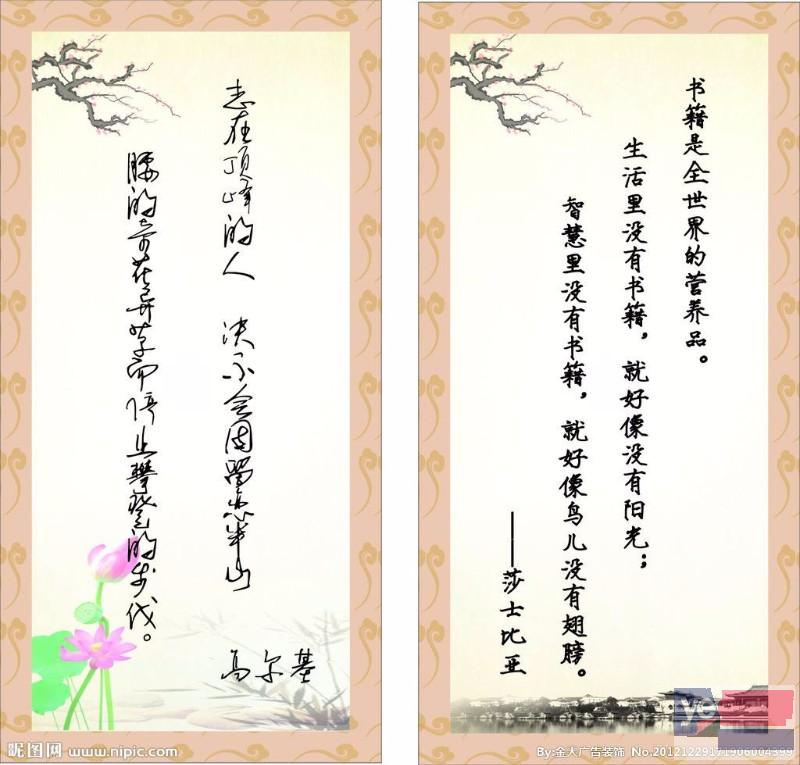 志在顶峰的人 决不会因留恋半山
腰的奇花异草而停止攀登的步伐。
高尔基
书籍是全世界的营养品。
生活里没有书籍，就好像没有阳光；
智慧里没有书籍，就好像鸟儿没有翅膀。
——莎士比亚
昵图网 www.nipic.com
By:金大广告装饰 No.20121229171906004399